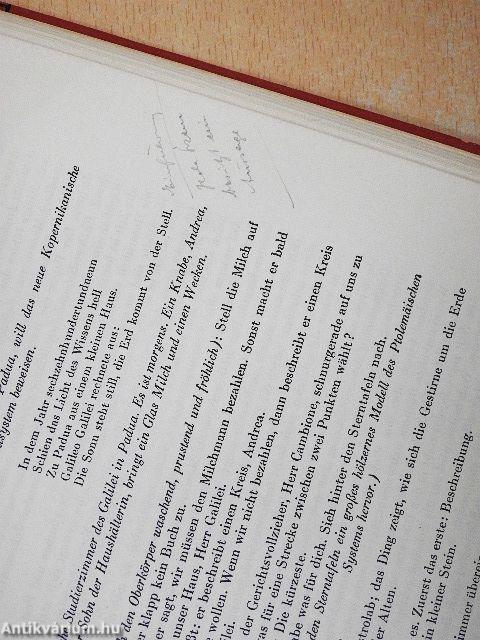 Padua, will das neue Kopernikanische
system beweisen.
In dem Jahr sechzehnhundertundneun
Schien das Licht des Wissens hell
Zu Padua aus einem kleinen Haus.
Galileo Galilei rechnete aus:
Die Sonn steht still, die Erd kommt von der Stell.
Studierzimmer des Galilei in Padua. Es ist morgens. Ein Knabe, Andrea,
der Haushälterin, bringt ein Glas Milch und einen Wecken.
Oberkörper waschend, prustend und fröhlich): Stell die Milch auf
klapp kein Buch zu.
sagt, wir müssen den Milchmann bezahlen. Sonst macht er bald
unser Haus, Herr Galilei.
er beschreibt einen Kreis, Andrea.
wollen. Wenn wir nicht bezahlen, dann beschreibt er einen Kreis
der Gerichtsvollzieher, Herr Cambione, schnurgerade auf uns zu
was für eine Strecke zwischen zwei Punkten wählt?
Die kürzeste.
be was für dich. Sieh hinter den Sterntafeln nach.
Sterntafeln ein großes hölzernes Modell des Ptolemäischen
Systems hervor.)
das Ding zeigt, wie sich die Gestirne um die Erde
der Alten.
Zuerst das erste: Beschreibung.
kleiner Stein.
Antikvárium.hu